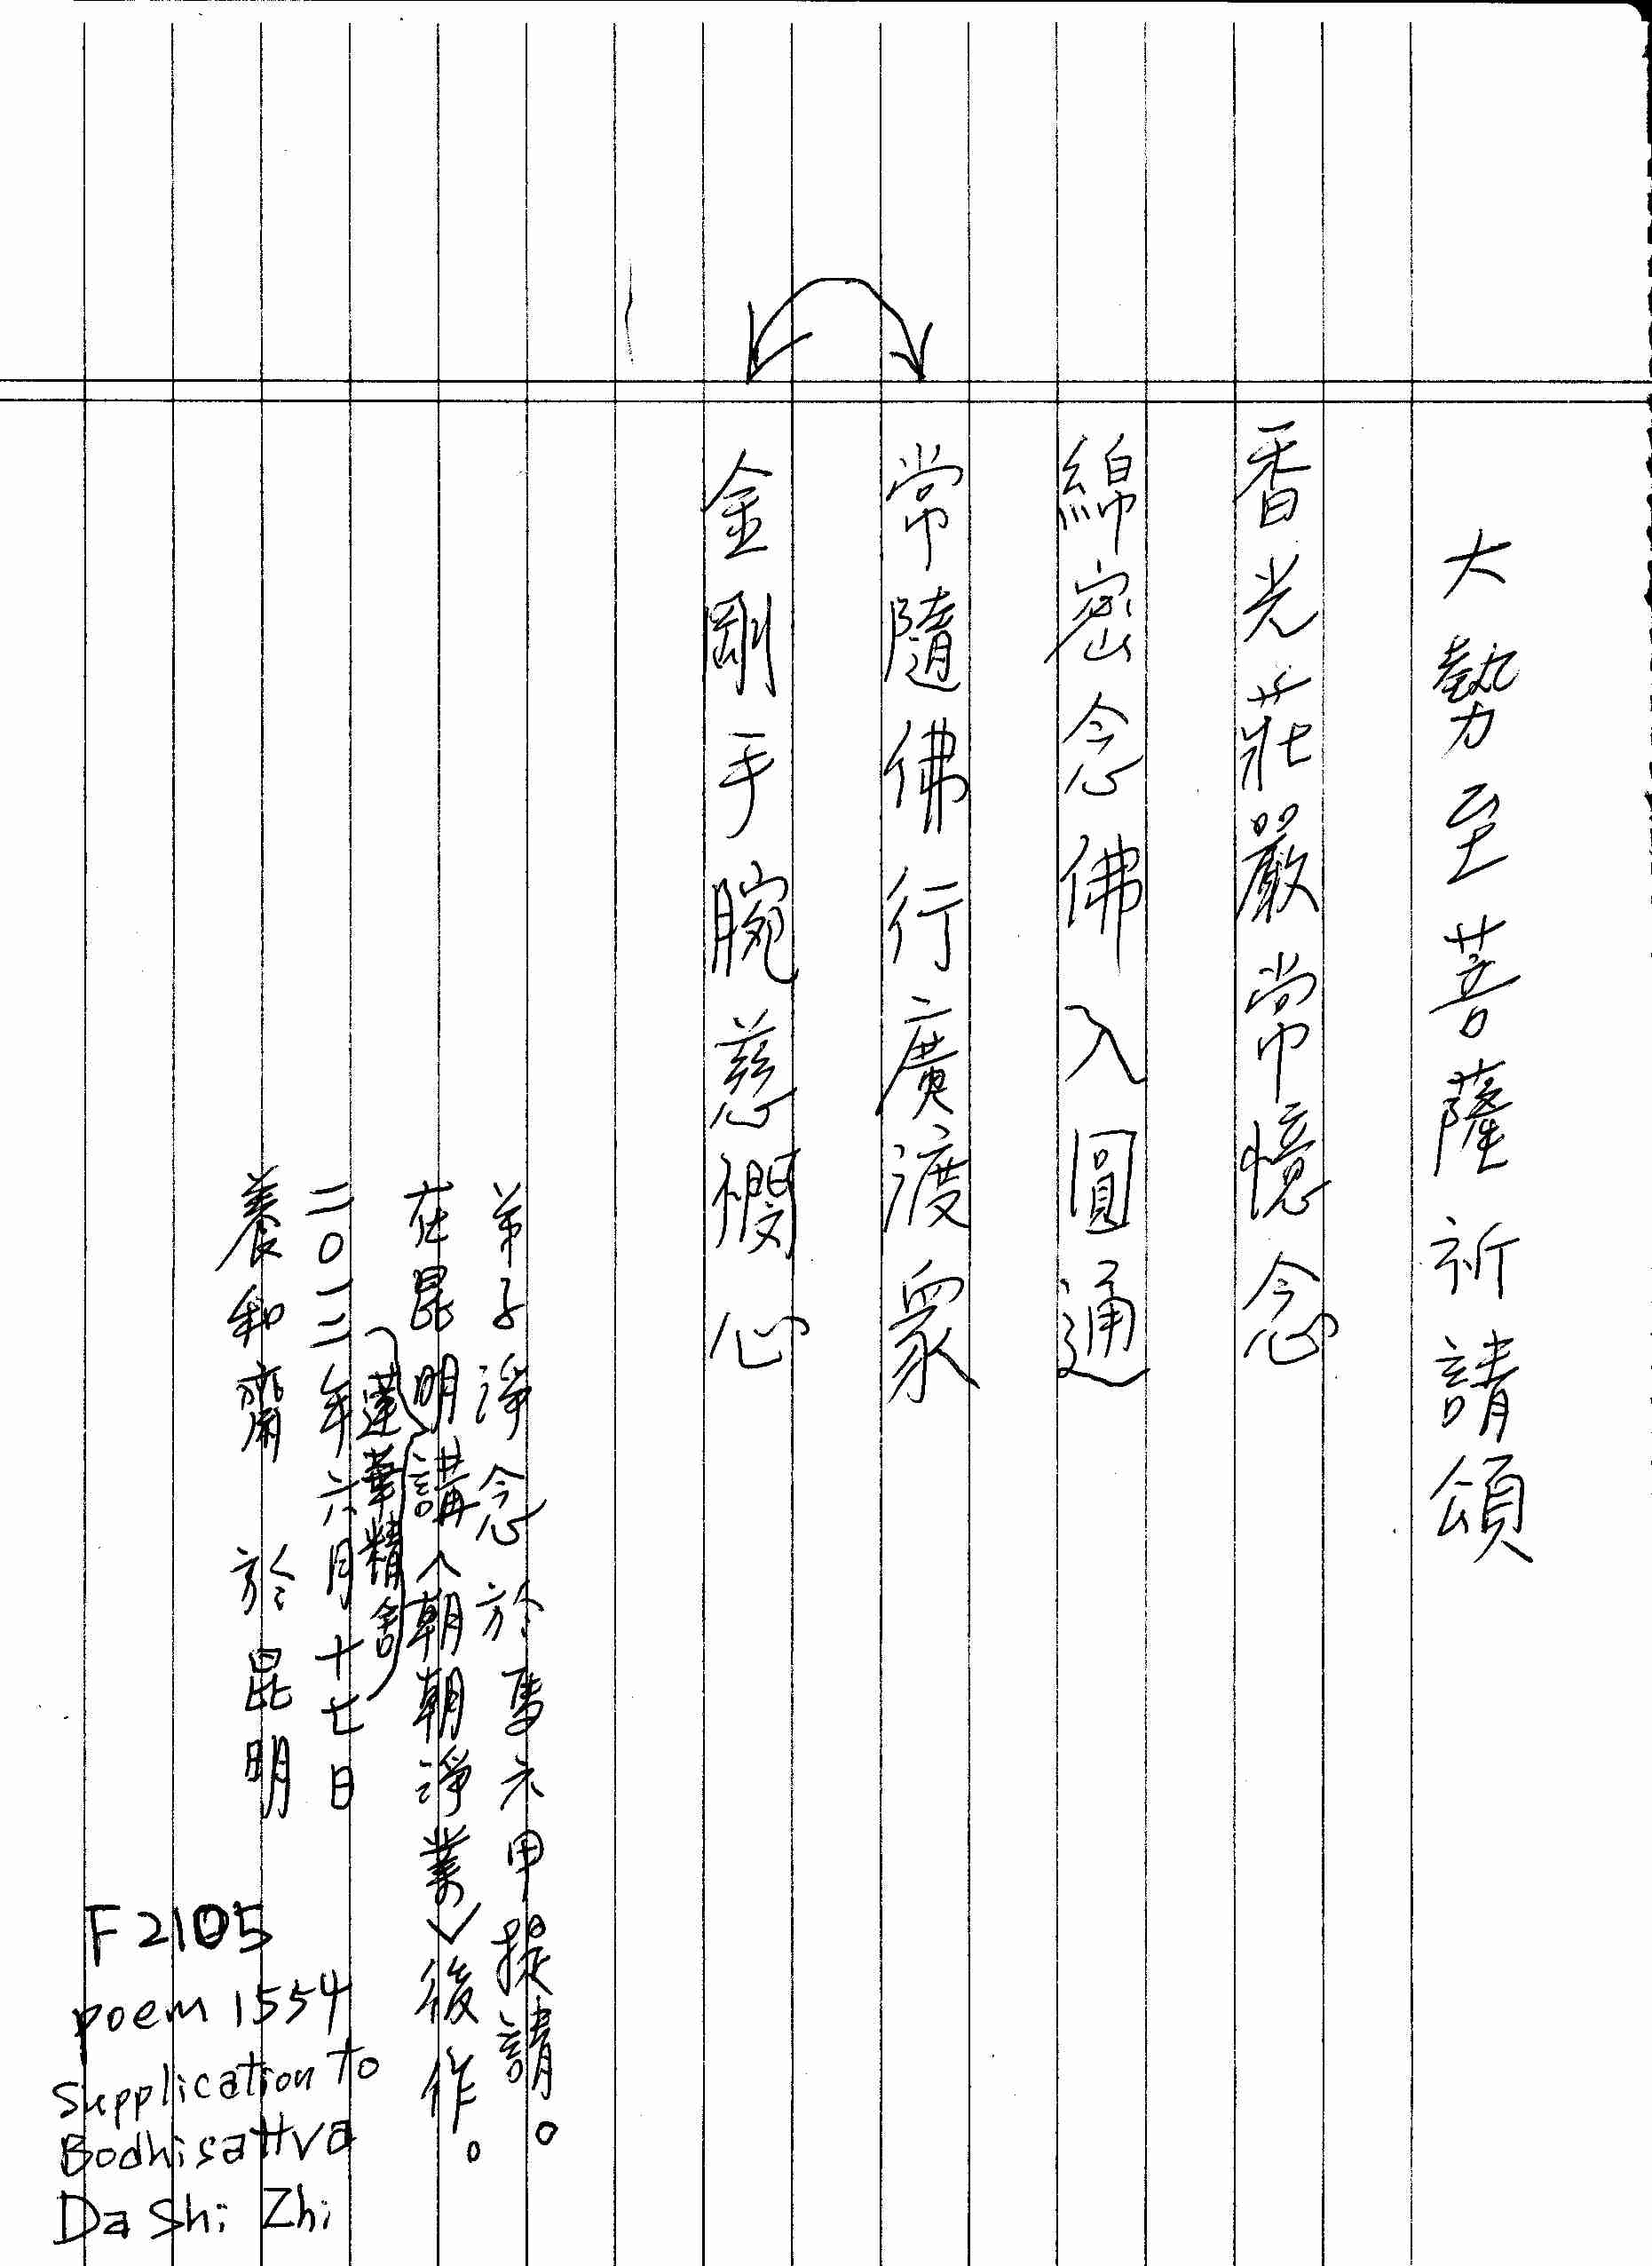 大勢至菩薩祈請頌
香光莊嚴常憶念
綿密念佛入圓通
常隨佛行廣渡眾
金剛手腕慈憫心
弟子淨念於馬六甲提請。
在昆明講〈朝朝淨業〉後作。
蓮華精舍
二〇一二年六月十七日
養和齋 於昆明
F2105
poem 1554
Supplication to
Bodhisattva
Da Shi Zhi